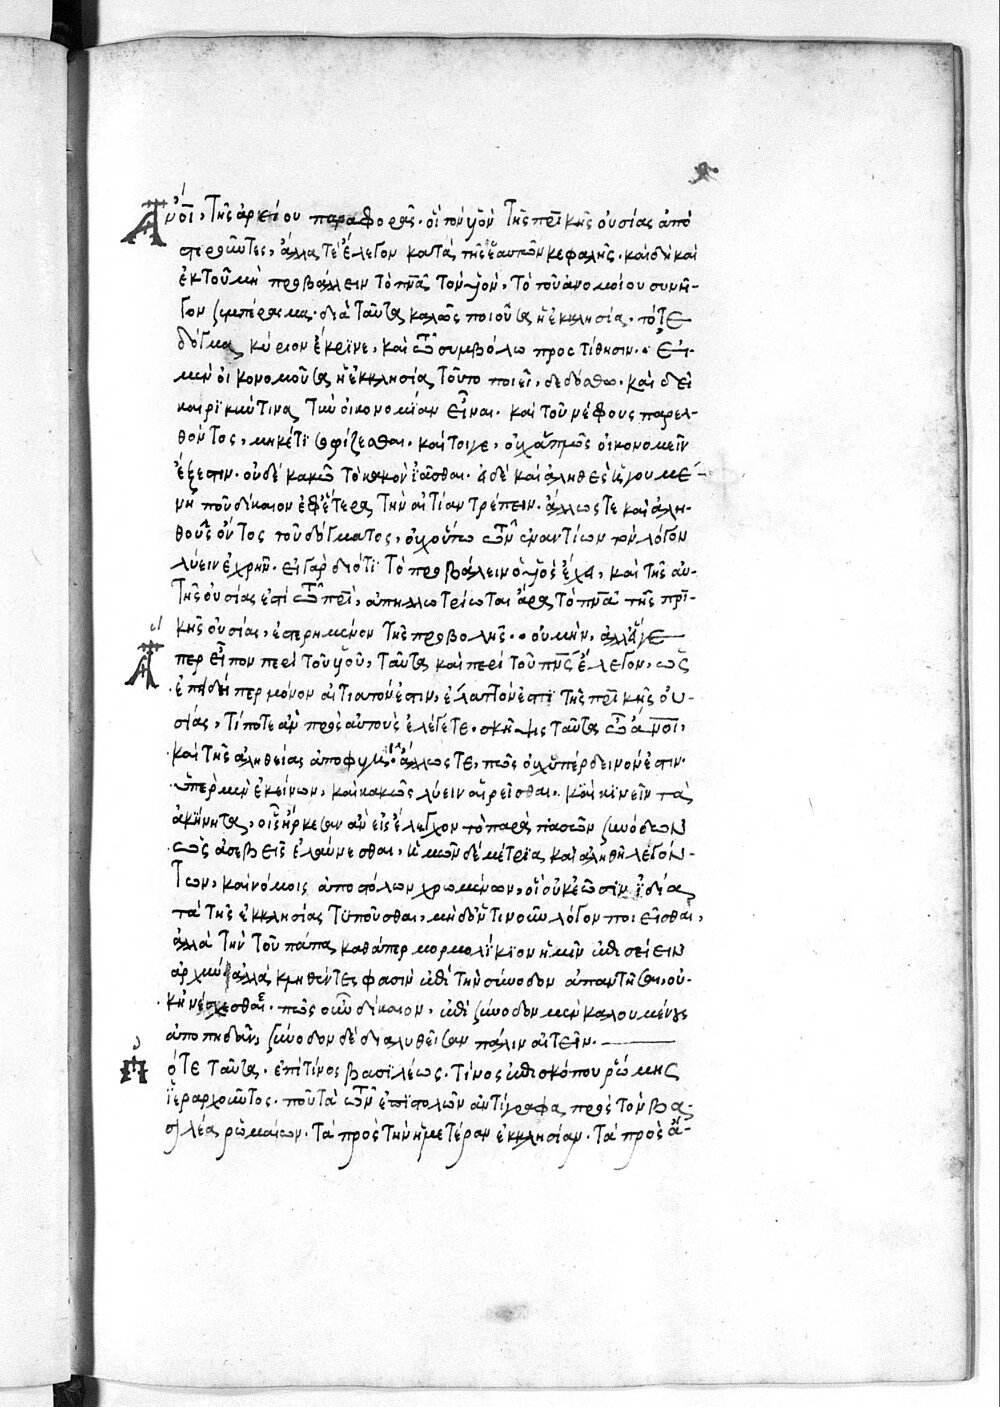 Ἄνοι, τῆς ἀρείου παραφορᾶς. οἳ τὸν υἱὸν τῆς πρικῆς οὐσίας ἀπο
στεροῦντες, ἄλλα τὲ ἔλεγον κατὰ τῆς ἑαυτῶν κεφαλῆς. καὶ δὴ καὶ
ἐκ τοῦ μὴ προβάλλειν τὸ πνα τὸν υἱόν, τὸ τοῦ ἀνομοίου συνῆ-
γον συμπέρασμα. διὰ ταῦτα καλῶς ποιοῦσα ἡ ἐκκλησία. τότε
δόγμα κύριον ἔκρινε, καὶ τῶ συμβόλω προστίθησιν. Εἰ
μὲν οἰκονομοῦσα ἡ ἐκκλησία τοῦτο ποιεῖ, δεδόσθω. καὶ δεῖ
καιρικήν τινα τὴν οἰκονομίαν εἶναι. καὶ τοῦ νέφους παρελ-
θόντος, μηκέτι ψηφίζεσθαι. καί τοιγε, οὐχ ἁπλῶς οἰκονομεῖν
ἔξεστιν. οὐδὲ κακῶ τὸ κακὸν ἰᾶσθαι. εἰ δὲ καὶ ἀληθὲς ἡγουμέ-
νη ποῦ δίκαιον ἐφ' ἕτερα τὴν αἰτίαν τρέπειν. ἄλλως τε καὶ ἀλη-
θοῦς ὄντος τοῦ δόγματος, οὐχ οὕτω τῶν ἐναντίων τὸν λόγον
λύειν ἐχρῆν. εἰ γὰρ διότι τὸ προβάλλειν ὁ υἱὸς ἔχει, καὶ τῆς αὐ-
τῆς οὐσίας ἐστὶ τῶ πρι, ἀπηλλοτρίωται ἄρα τὸ πνα τῆς πρι-
κῆς οὐσίας, ἐστερημένον τῆς προβολῆς. οὐ μὴν, ἀλλ' εἴγε
περ εἶπον περὶ τοῦ υἱοῦ, ταῦτα καὶ περὶ τοῦ πνς ἔλεγον, ὡς
ἐπειδήπερ μόνον αἰτιατόν ἐστιν, ἔλαττον ἐστὶ τῆς πρικῆς οὐ-
σίας, τί ποτε ἂν πρὸς αὐτοὺς ἐλέγετε. σκῆψις ταῦτα ὦ ἄνοι,
καὶ τῆς ἀληθείας ἀποφυγή. ἄλλως τε, πῶς οὐχ ὑπέρδεινόν ἐστιν.
ὑπὲρ μὲν ἐκείνων, καὶ κακῶς λύειν αἱρεῖσθαι. καὶ κινεῖν τὰ
ἀκίνητα, οἷς ἤρκεσεν ἂν εἰς ἔλεγχον τὸ παρὰ πασῶν συνόδων
ὡς ἀσεβεῖς ἐλαύνεσθαι, ἡμῶν δὲ μέτρια καὶ ἀληθῆ λεγόν-
των, καὶ νόμοις ἀποστόλων χρωμένων, οἳ οὐκ ἐῶσιν ἰδία
τὰ τῆς ἐκκλησίας τυποῦσθαι, μηδένα τινοῦν λόγον ποιεῖσθαι,
ἀλλὰ τὴν τοῦ πάπα καθάπερ μορμολίκιον ἡμῖν ἐπισείειν
ἀρχήν, ἀλλὰ κληθέντες φασὶν ἐπὶ τὴν σύνοδον ἀπαντῆσαι, οὐ-
κ ἠνέσχεσθαι. πῶς οὖν δίκαιον, ἐπὶ σύνοδον μὲν καλουμένους
ἀποπηδᾶν, σύνοδον δὲ διαλυθεῖσαν πάλιν αἰτεῖν.
πότε ταῦτα. ἐπὶ τίνος βασιλέως. τίνος ἐπισκόπου ῥώμης
ἱεραρχοῦντος. ποῦ τὰ τῶν ἐπιστολῶν ἀντίγραφα πρὸς τὸν βα-
σιλέα ῥωμαίων. τὰ πρὸς τὴν ἡμετέραν ἐκκλησίαν. τὰ πρὸς ἄ-